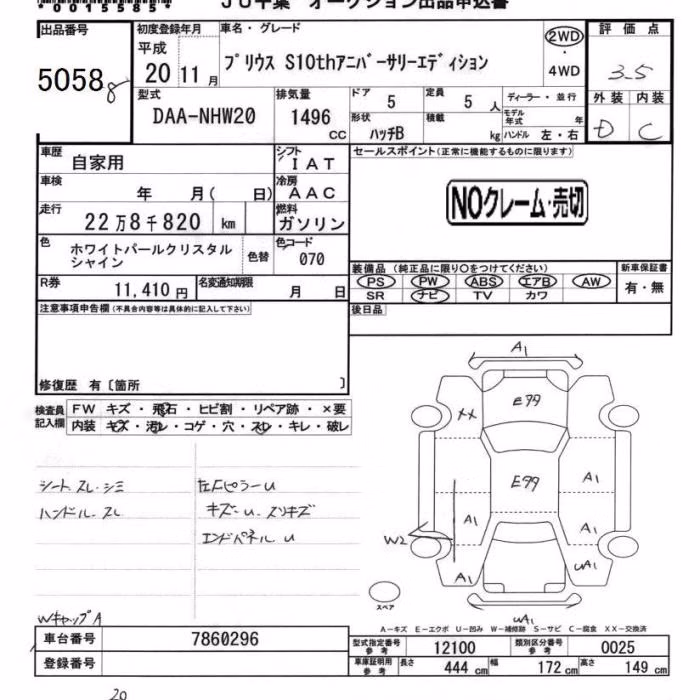 0015585
JU千葉 オークション出品申込書
出品番号
5058
初度登録年月
平成
20 11 月
車名・グレード
プリウス S10thアニバーサリーエディション
2WD
・
4WD
評価点
3.5
外装 内装
D C
型式
DAA-NHW20
排気量
1496
CC
ドア
5
定員
5 人
ディーラー・並行
モデル年式 年
形状
ハッチB
積載
kg
ハンドル 左・右
車歴
自家用
シフト
IAT
セールスポイント(正常に機能するものに限ります)
車検
年 月( 日)
冷房
AAC
NOクレーム・売切
走行
22万8千820 km
燃料
ガソリン
色
ホワイトパールクリスタル
シャイン
色替
色コード
070
装備品 (純正品に限り○をつけてください)
新車保証書
PS PW ABS エアB AW
SR ナビ TV カワ
有・無
R券
11,410 円
名変通知期限
月 日
注意事項申告欄(不具合内容等は具体的に記入して下さい)
後日品
修復歴 有〔箇所 〕
検査員
記入欄
FW キズ・飛石・ヒビ割・リペア跡・×要
内装 キズ・汚レ・コゲ・穴・スレ・キレ・破レ
シート スレ・シミ
ハンドル・スレ
左Fピラーu
キズ-u・スリキズ
エンドパネル u
A1
XX
E99
E99
A1
A1
A1
W2
A1
uA1
スペア
uA1
WキャップA
A-キズ E-エクボ U-凹み W-補修跡 S-サビ C-腐食 XX-交換済
車台番号
7860296
登録番号
型式指定番号
参考
12100
類別区分番号
参考
0025
車庫証明用
参考
長さ
444 cm
幅
172 cm
高さ
149 cm
20